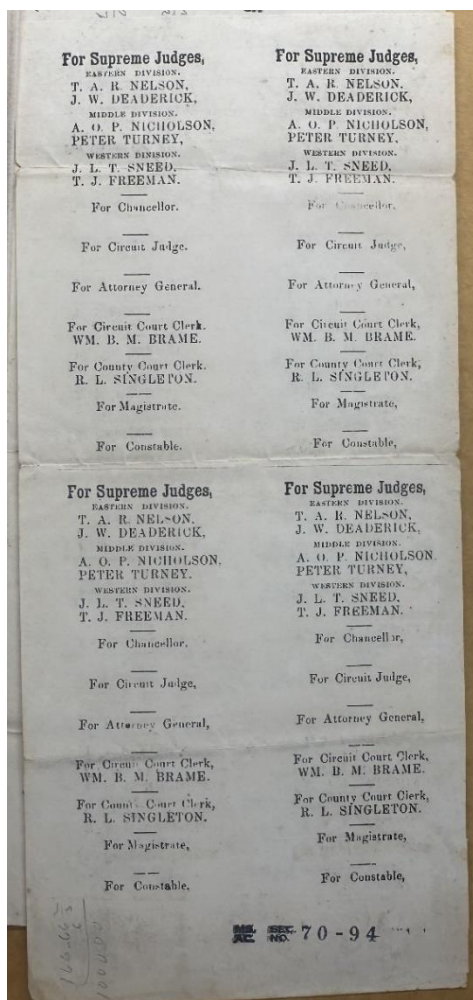 For Supreme Judges,
EASTERN DIVISION.
T. A. R. NELSON,
J. W. DEADERICK,
MIDDLE DIVISION.
A. O. P. NICHOLSON,
PETER TURNEY,
WESTERN DIVISION.
J. L. T. SNEED,
T. J. FREEMAN.
For Chancellor.
For Circuit Judge.
For Attorney General.
For Circuit Court Clerk.
WM. B. M. BRAME.
For County Court Clerk.
R. L. SINGLETON.
For Magistrate.
For Constable.
For Supreme Judges,
EASTERN DIVISION.
T. A. R. NELSON.
J. W. DEADERICK,
MIDDLE DIVISION.
A. O. P. NICHOLSON,
PETER TURNEY,
WESTERN DIVISION.
J. L. T. SNEED,
T. J. FREEMAN.
For Chancellor,
For Circuit Judge,
For Attorney General,
For Circuit Court Clerk,
WM. B. M. BRAME.
For County Court Clerk,
R. L. SINGLETON.
For Magistrate,
For Constable,
For Supreme Judges,
EASTERN DIVISION.
T. A. R. NELSON,
J. W. DEADERICK,
MIDDLE DIVISION.
A. O. P. NICHOLSON,
PETER TURNEY.
WESTERN DIVISION.
J. L. T. SNEED,
T. J. FREEMAN.
For Chancellor.
For Circuit Judge,
For Attorney General,
For Circuit Court Clerk,
WM. B. M. BRAME.
For County Court Clerk,
R. L. SINGLETON.
For Magistrate,
For Constable,
For Supreme Judges,
EASTERN DIVISION.
T. A. R. NELSON,
J. W. DEADERICK,
MIDDLE DIVISION.
A. O. P. NICHOLSON
PETER TURNEY,
WESTERN DIVISION.
J. L. T. SNEED,
T. J. FREEMAN.
For Chancellor,
For Circuit Judge,
For Attorney General,
For Circuit Court Clerk,
WM. B. M. BRAME.
For County Court Clerk,
R. L. SINGLETON.
For Magistrate,
For Constable,
70-94